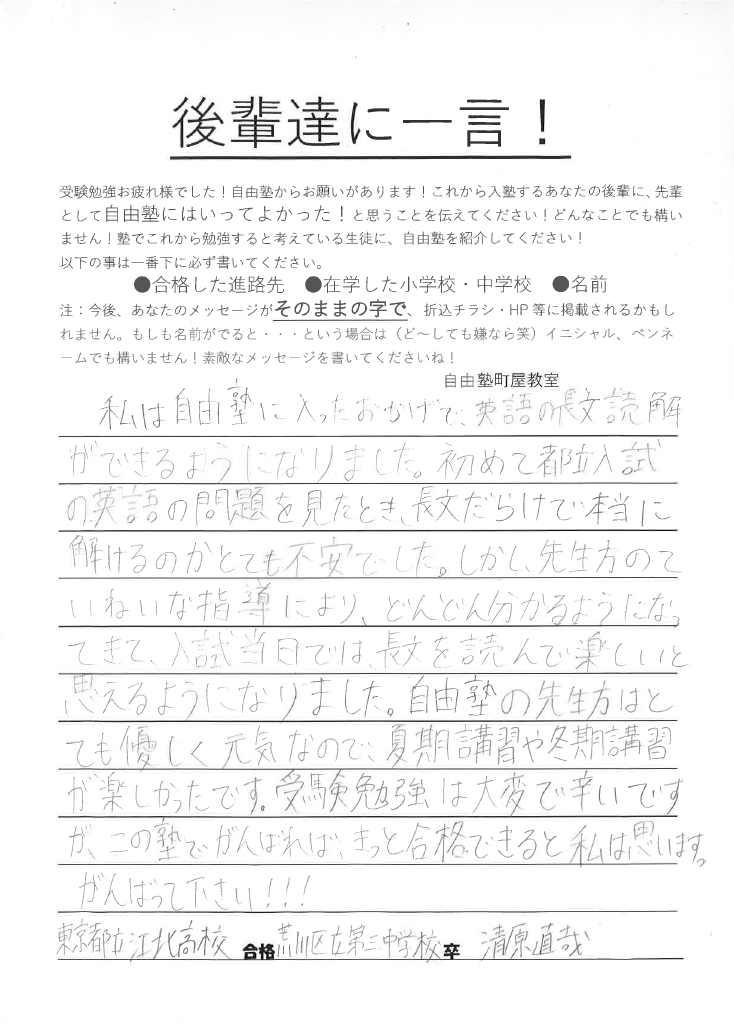 後輩達に一言！
受験勉強お疲れ様でした！自由塾からお願いがあります！これから入塾するあなたの後輩に、先輩
として自由塾にはいってよかった！と思うことを伝えてください！どんなことでも構い
ません！塾でこれから勉強すると考えている生徒に、自由塾を紹介してください！
以下の事は一番下に必ず書いてください。
●合格した進路先　●在学した小学校・中学校　●名前
注：今後、あなたのメッセージがそのままの字で、折込チラシ・HP等に掲載されるかもし
れません。もしも名前がでると・・・という場合は（ど～しても嫌なら笑）イニシャル、ペンネ
ームでも構いません！素敵なメッセージを書いてくださいね！
自由塾町屋教室
私は自由塾に入ったおかげで、英語の長文読解
ができるようになりました。初めて都立入試
の英語の問題を見たとき、長文だらけで本当に
解けるのかとても不安でした。しかし、先生方のて
いねいな指導により、どんどん分かるようになっ
てきて、入試当日では、長文を読んで楽しいと
思えるようになりました。自由塾の先生方はと
ても優しく元気なので、夏期講習や冬期講習
が楽しかったです。受験勉強は大変で辛いです
が、この塾でがんばれば、きっと合格できると私は思います。
がんばって下さい！！！
東京都立江北高校 合格 荒川区立第三中学校 卒 清原直哉